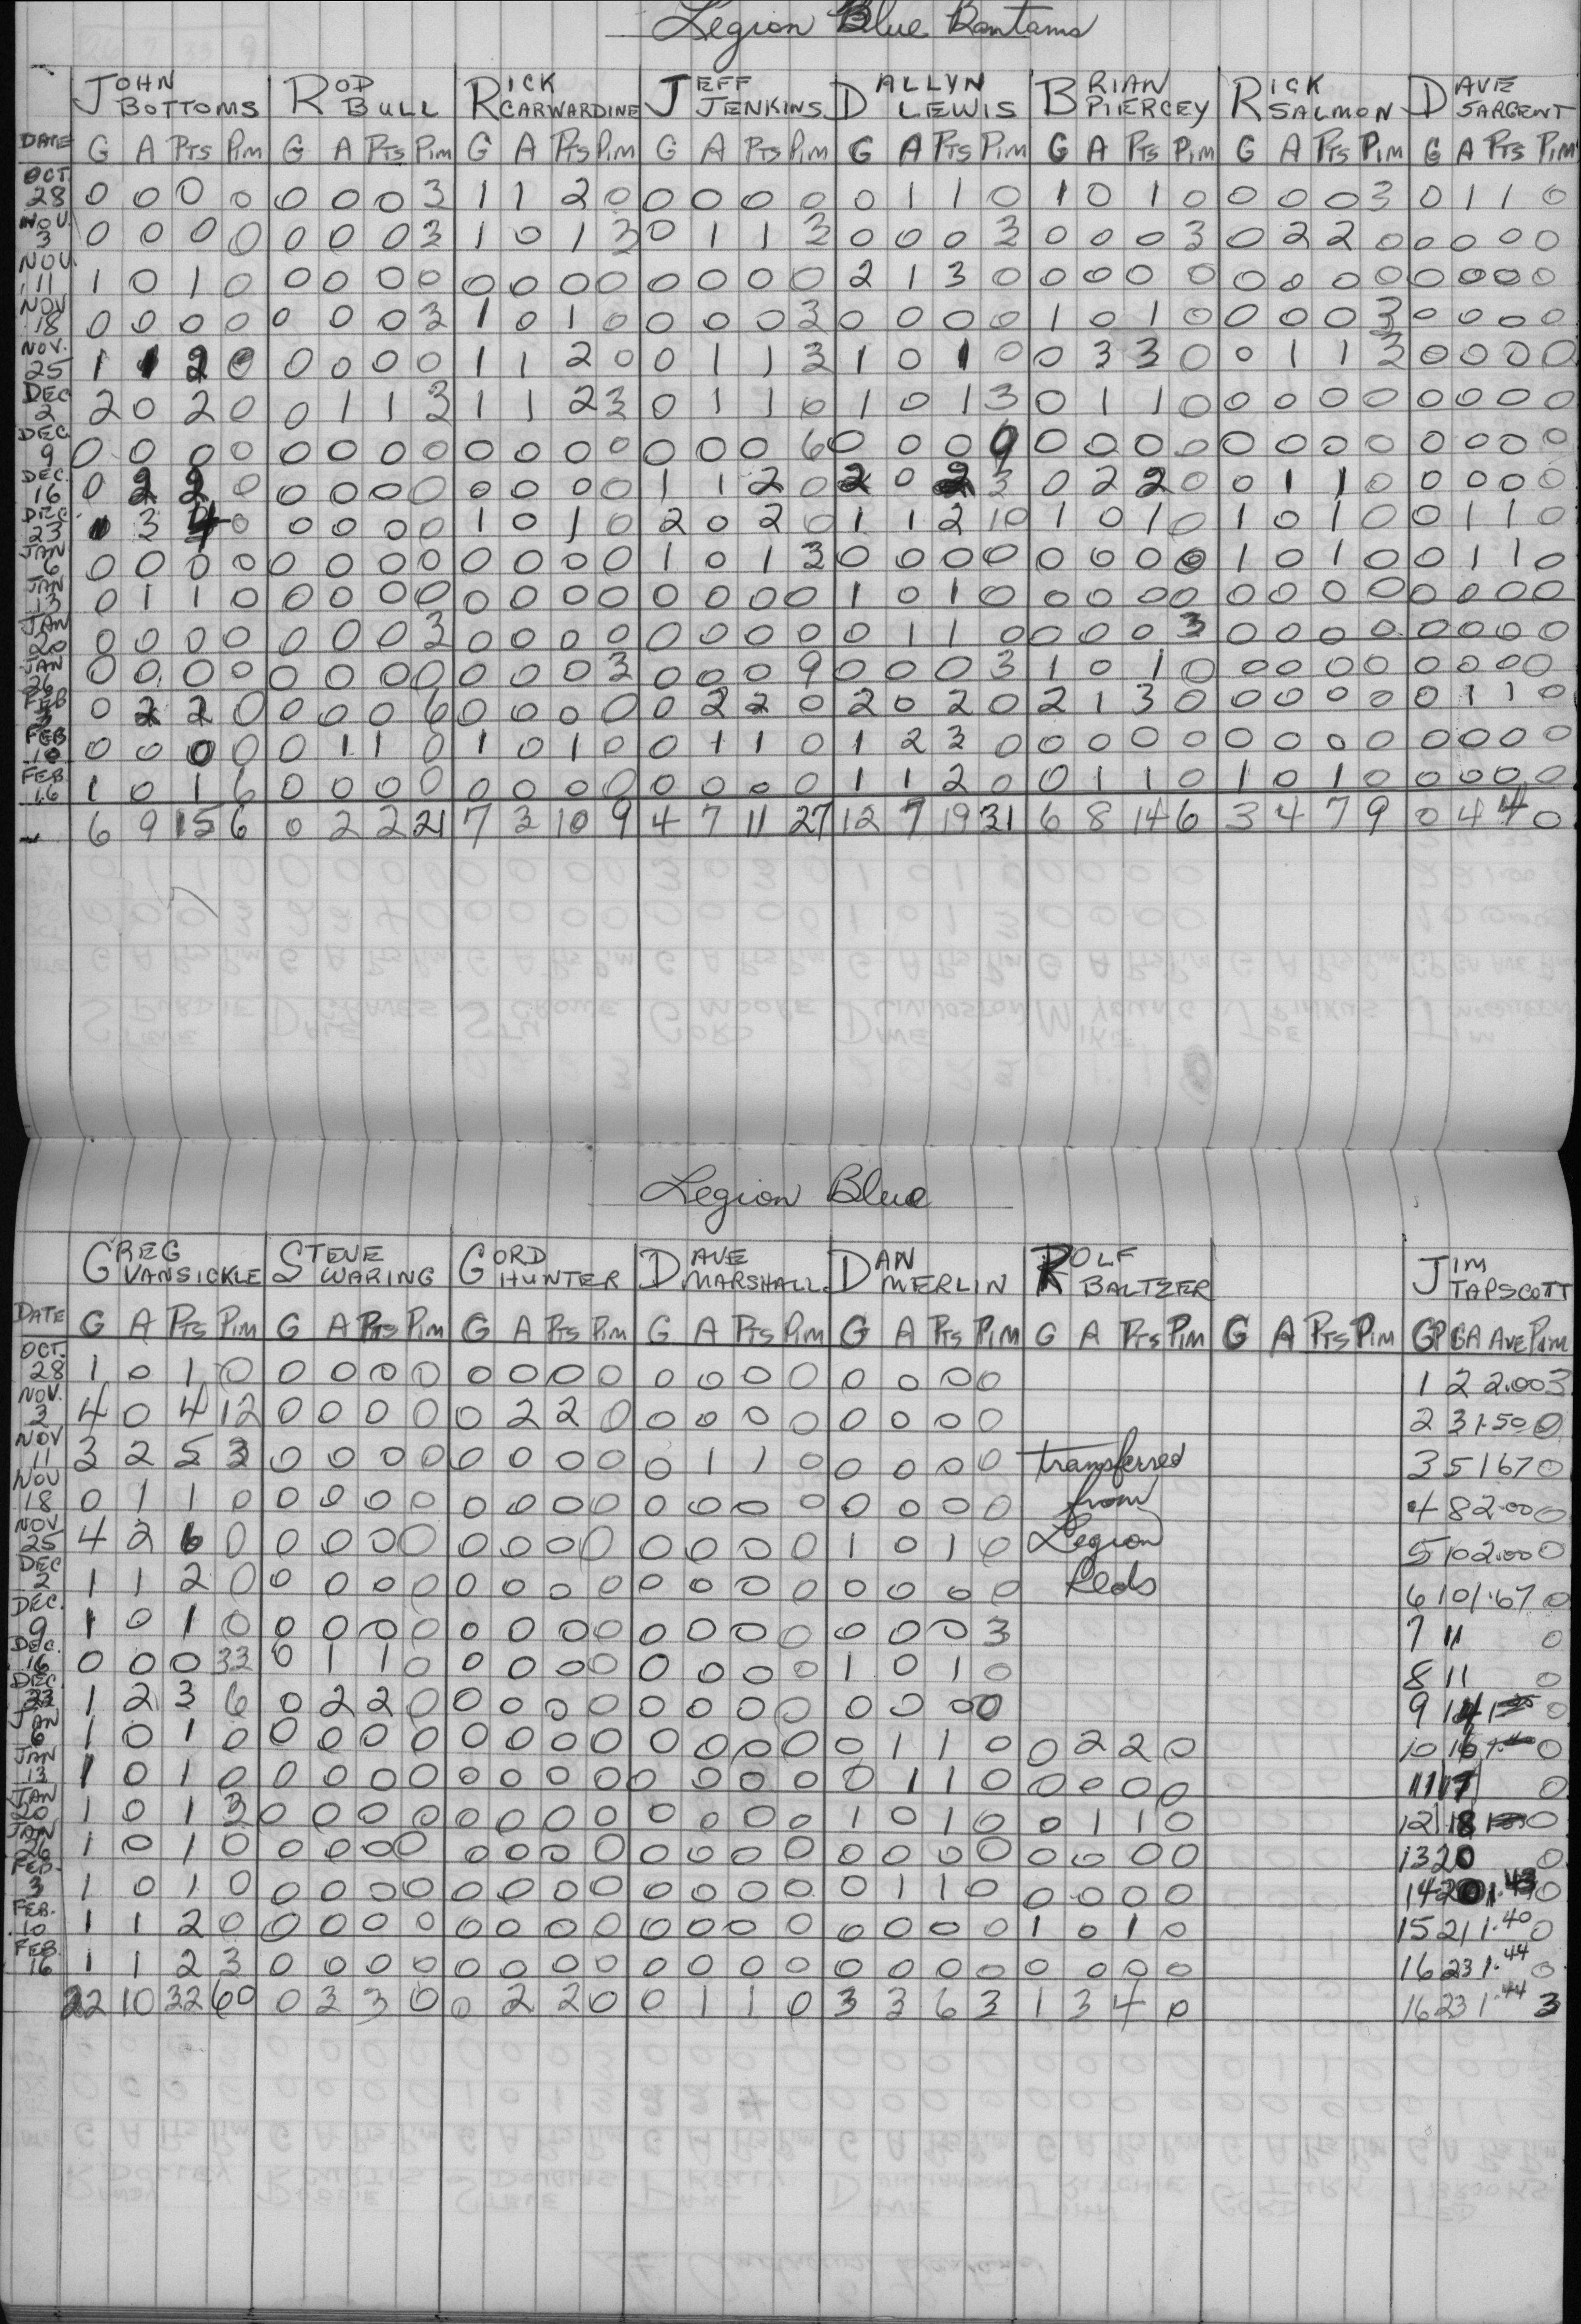 Legion Blue Bantams
JOHN BOTTOMS ROD BULL RICK CARWARDINE JEFF JENKINS DALLYN LEWIS BRIAN PIERCEY RICK SALMON DAVE SARGENT
DATE G A PTS PIM G A PTS PIM G A PTS PIM G A PTS PIM G A PTS PIM G A PTS PIM G A PTS PIM G A PTS PIM
OCT 28 0 0 0 0 0 0 0 3 1 1 2 0 0 0 0 0 0 1 1 0 1 0 1 0 0 0 0 3 0 1 1 0
NOV. 3 0 0 0 0 0 0 0 3 1 0 1 3 0 1 1 3 0 0 0 3 0 0 0 3 0 2 2 0 0 0 0 0
NOV. 11 1 0 1 0 0 0 0 0 0 0 0 0 0 0 0 0 2 1 3 0 0 0 0 0 0 0 0 0 0 0 0 0
NOV 18 0 0 0 0 0 0 0 3 1 0 1 0 0 0 0 3 0 0 0 0 1 0 1 0 0 0 0 3 0 0 0 0
NOV. 25 1 1 2 0 0 0 0 0 1 1 2 0 0 1 1 3 1 0 1 0 0 3 3 0 0 1 1 3 0 0 0 0
DEC 2 2 0 2 0 0 1 1 3 1 1 2 3 0 1 1 0 1 0 1 3 0 1 1 0 0 0 0 0 0 0 0 0
DEC. 9 0 0 0 0 0 0 0 0 0 0 0 0 0 0 0 6 0 0 0 9 0 0 0 0 0 0 0 0 0 0 0 0
DEC. 16 0 2 2 0 0 0 0 0 0 0 0 0 1 1 2 0 2 0 2 3 0 2 2 0 0 1 1 0 0 0 0 0
DEC 23 1 3 4 0 0 0 0 0 1 0 1 0 2 0 2 0 1 1 2 10 1 0 1 0 1 0 1 0 0 1 1 0
JAN 6 0 0 0 0 0 0 0 0 0 0 0 0 1 0 1 3 0 0 0 0 0 0 0 0 1 0 1 0 0 1 1 0
JAN 13 0 1 1 0 0 0 0 0 0 0 0 0 0 0 0 0 1 0 1 0 0 0 0 0 0 0 0 0 0 0 0 0
JAN 20 0 0 0 0 0 0 0 3 0 0 0 0 0 0 0 0 0 1 1 0 0 0 0 3 0 0 0 0 0 0 0 0
JAN 26 0 0 0 0 0 0 0 0 0 0 0 3 0 0 0 9 0 0 0 3 1 0 1 0 0 0 0 0 0 0 0 0
FEB 3 0 2 2 0 0 0 0 6 0 0 0 0 0 2 2 0 2 0 2 0 2 1 3 0 0 0 0 0 0 1 1 0
FEB 10 0 0 0 0 0 1 1 0 1 0 1 0 0 1 1 0 1 2 3 0 0 0 0 0 0 0 0 0 0 0 0 0
FEB. 16 1 0 1 6 0 0 0 0 0 0 0 0 0 0 0 0 1 1 2 0 0 1 1 0 1 0 1 0 0 0 0 0
6 9 15 6 0 2 2 21 7 3 10 9 4 7 11 27 12 7 19 31 6 8 14 6 3 4 7 9 0 4 4 0
Legion Blue
GREG VANSICKLE STEVE WARING GORD HUNTER DAVE MARSHALL DAN MERLIN ROLF BALTZER JIM TAPSCOTT
DATE G A PTS PIM G A PTS PIM G A PTS PIM G A PTS PIM G A PTS PIM G A PTS PIM G A PTS PIM GP GA AVE PIM
OCT. 28 1 0 1 0 0 0 0 0 0 0 0 0 0 0 0 0 0 0 0 0 1 2 2.00 3
NOV. 3 4 0 4 12 0 0 0 0 0 2 2 0 0 0 0 0 0 0 0 0 2 3 1.50 0
NOV 11 3 2 5 3 0 0 0 0 0 0 0 0 0 1 1 0 0 0 0 0 transferred 3 5 1 67 0
NOV 18 0 1 1 0 0 0 0 0 0 0 0 0 0 0 0 0 0 0 0 0 from 4 8 2.00 0
NOV 25 4 2 6 0 0 0 0 0 0 0 0 0 0 0 0 0 1 0 1 0 Legion 5 10 2.00 0
DEC 2 1 1 2 0 0 0 0 0 0 0 0 0 0 0 0 0 0 0 0 0 Reds 6 10 1.67 0
DEC. 9 1 0 1 0 0 0 0 0 0 0 0 0 0 0 0 0 0 0 0 3 7 11 0
DEC. 16 0 0 0 33 0 1 1 0 0 0 0 0 0 0 0 0 1 0 1 0 8 11 0
DEC 23 1 2 3 6 0 2 2 0 0 0 0 0 0 0 0 0 0 0 0 0 9 14 0
JAN 6 1 0 1 0 0 0 0 0 0 0 0 0 0 0 0 0 0 1 1 0 0 2 2 0 10 16 0
JAN 13 1 0 1 0 0 0 0 0 0 0 0 0 0 0 0 0 0 1 1 0 0 0 0 0 11 17 0
JAN 20 1 0 1 3 0 0 0 0 0 0 0 0 0 0 0 0 1 0 1 0 0 1 1 0 12 18 0
JAN 26 1 0 1 0 0 0 0 0 0 0 0 0 0 0 0 0 0 0 0 0 0 0 0 0 13 20 0
FEB. 3 1 0 1 0 0 0 0 0 0 0 0 0 0 0 0 0 0 1 1 0 0 0 0 0 14 20 1.43 0
FEB. 10 1 1 2 0 0 0 0 0 0 0 0 0 0 0 0 0 0 0 0 0 1 0 1 0 15 21 1.40 0
FEB. 16 1 1 2 3 0 0 0 0 0 0 0 0 0 0 0 0 0 0 0 0 0 0 0 0 16 23 1.44 0
22 10 32 60 0 3 3 0 0 2 2 0 0 1 1 0 3 3 6 3 1 3 4 0 16 23 1.44 3